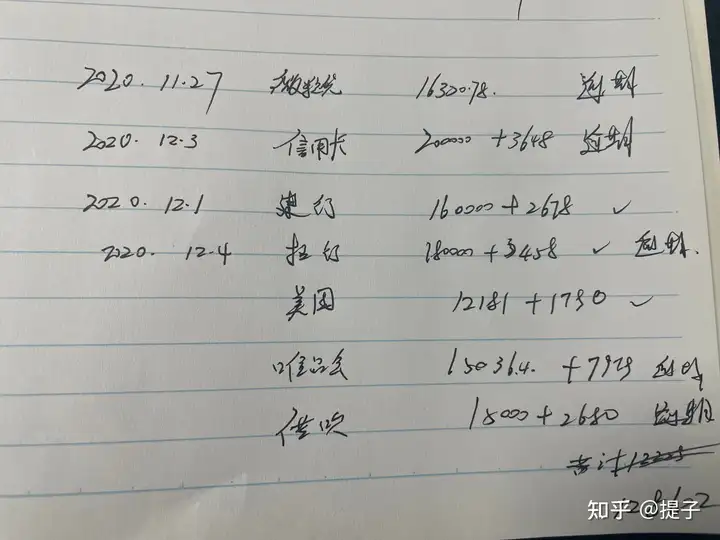 2020.11.27 微粒贷 16320.78. 逾期
2020.12.3 信用卡 200000+3648 逾期
2020.12.1 建行 160000+2678 ✓
2020.12.4 招行 180000+3458 ✓ 逾期.
美团 12181+1790 ✓
唯品会 15036.4. +7929 逾期
借呗 15000+2680 逾期
共计
知乎 @提子